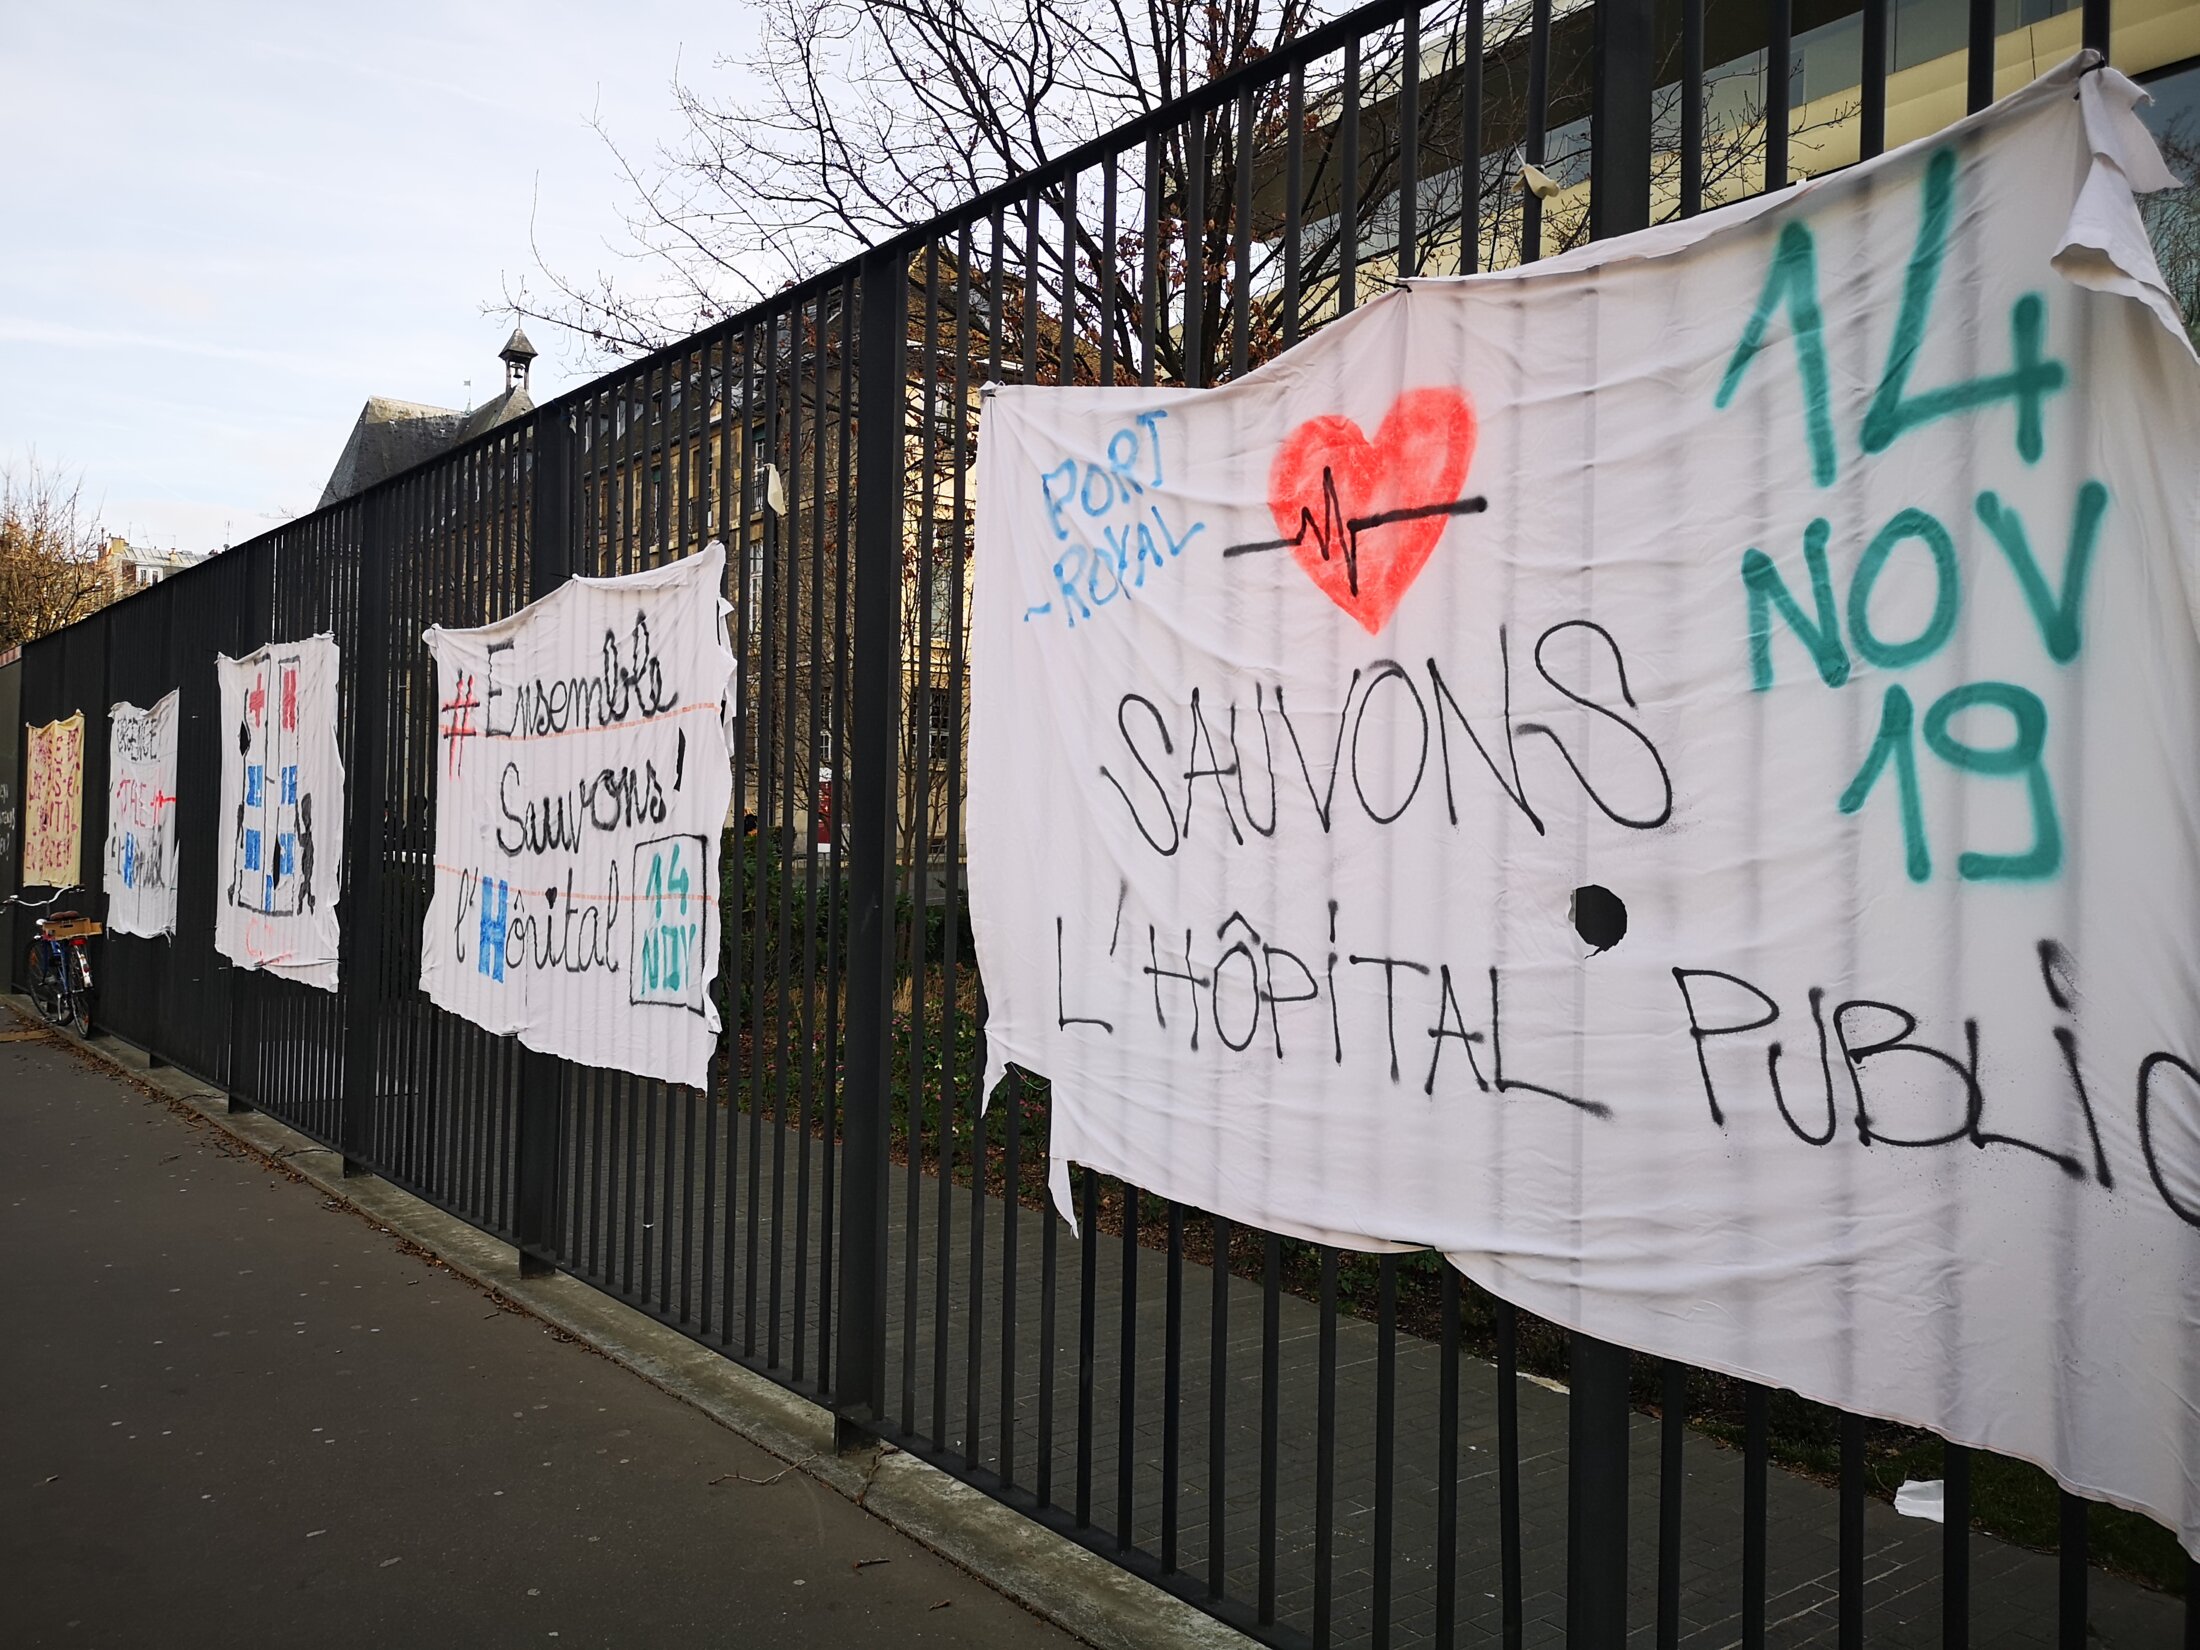 PORT
-ROYAL
14
NOV
19
SAUVONS
L'HÔPITAL PUBLIC
#Ensemble
Sauvons
l'Hôpital
14
NOV
URGENCE
l'Hôpital